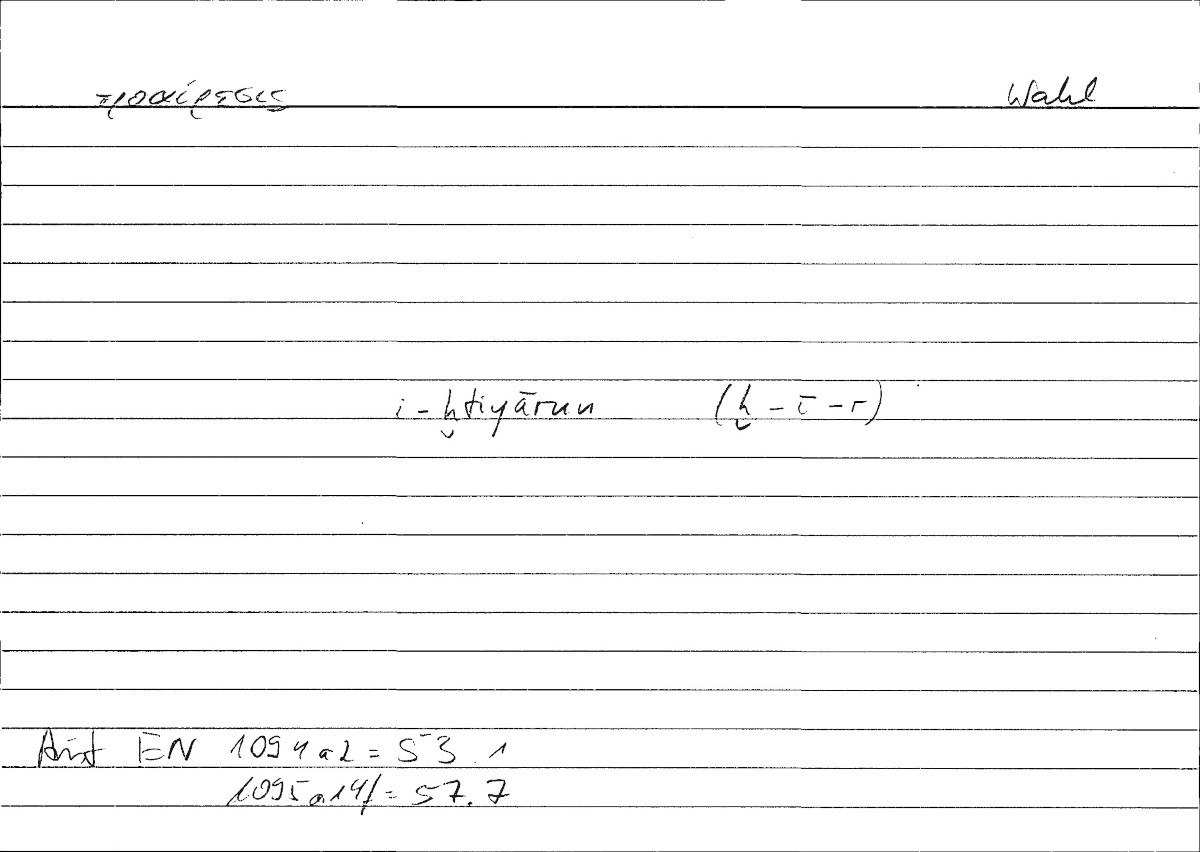 προαίρεσις Wahl
i-ḫtiyārun (ḫ-ī-r)
Arist EN 1094 a 2 = 53.1
1095 a 14f = 57.7